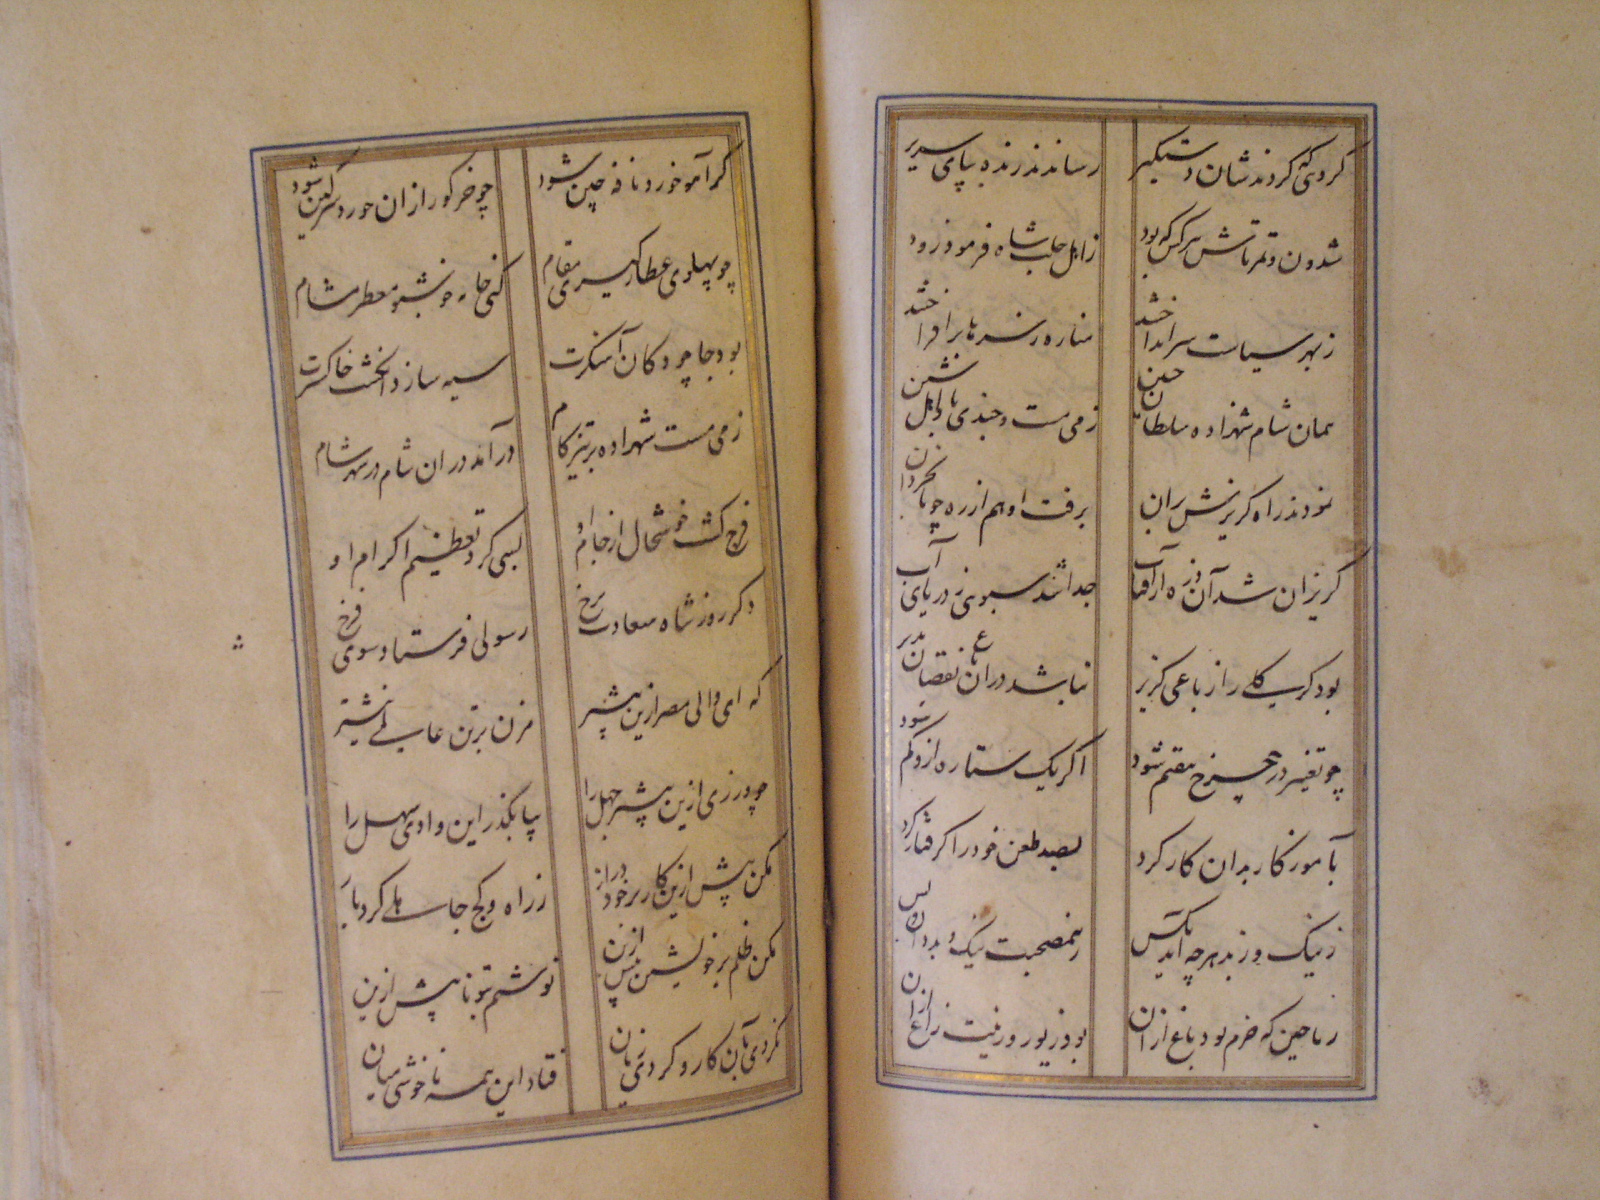 گروهی که کردند شان دستگیر رساندند زنده بپای سریر
شدون و قمرتاش سرکس که بود ز اهل حلب شاه فرمود زود
ز بهر سیاست سر انداختند مناره ز سرها برافراختند
همان شام شهزاده سلطان حسین ز می مست و جندی با اهل شین
نمودند راه گریزش بران برفت او هم از ره چو نابخردان
گریزان شد آن ذره از آفتاب جدا شد سبوئی ز دریای آب
بود گر یک کلی را ز باغی گزیر نباشد در ان باغ نقصان پذیر
چو تغییر در چرخ مقیم شود اگر یک ستاره ازو کم شود
بآموزگار بدان کار کرد بصد طعن خود را گرفتار کرد
ز نیک و ز بد هر چه آید بکس ز هم صحبت نیک و بد دان و بس
ریاحین که خرم بود باغ از ان بود زیور و زینت راغ از ان
گر آهو خورد نافه چین شود چو خر کور ازان خورد سرگین شود
چو پهلوی عطار گیری مقام کنی خانه خوشبو معطر مشام
بود جا چو دکان آهنگرت سیه سازد انگشت خاکسترت
ز می مست شهزاده بر تیز کام درآمد در ان شام در شهر شام
فرج گشت خوشحال از جام او بسی کرد تعظیم اکرام او
دکر روز شاه سعادت فرخ رسولی فرستاد سوی فرج
که ای والی مصر ازین پیشتر مزن برتن عافیت نیشتر
چو ورزی ازین پیشتر جهل را بپا بگذر این وادی سهل را
مکن پیش ازین کار بر خود دراز ز راه کج جاهلی گرد باز
مکن ظلم بر خویشتن پیش ازین نوشتم بتو نامه پیش ازین
نکردی بآن کار و کردی زیان فتاد این همه ناخوشی میان